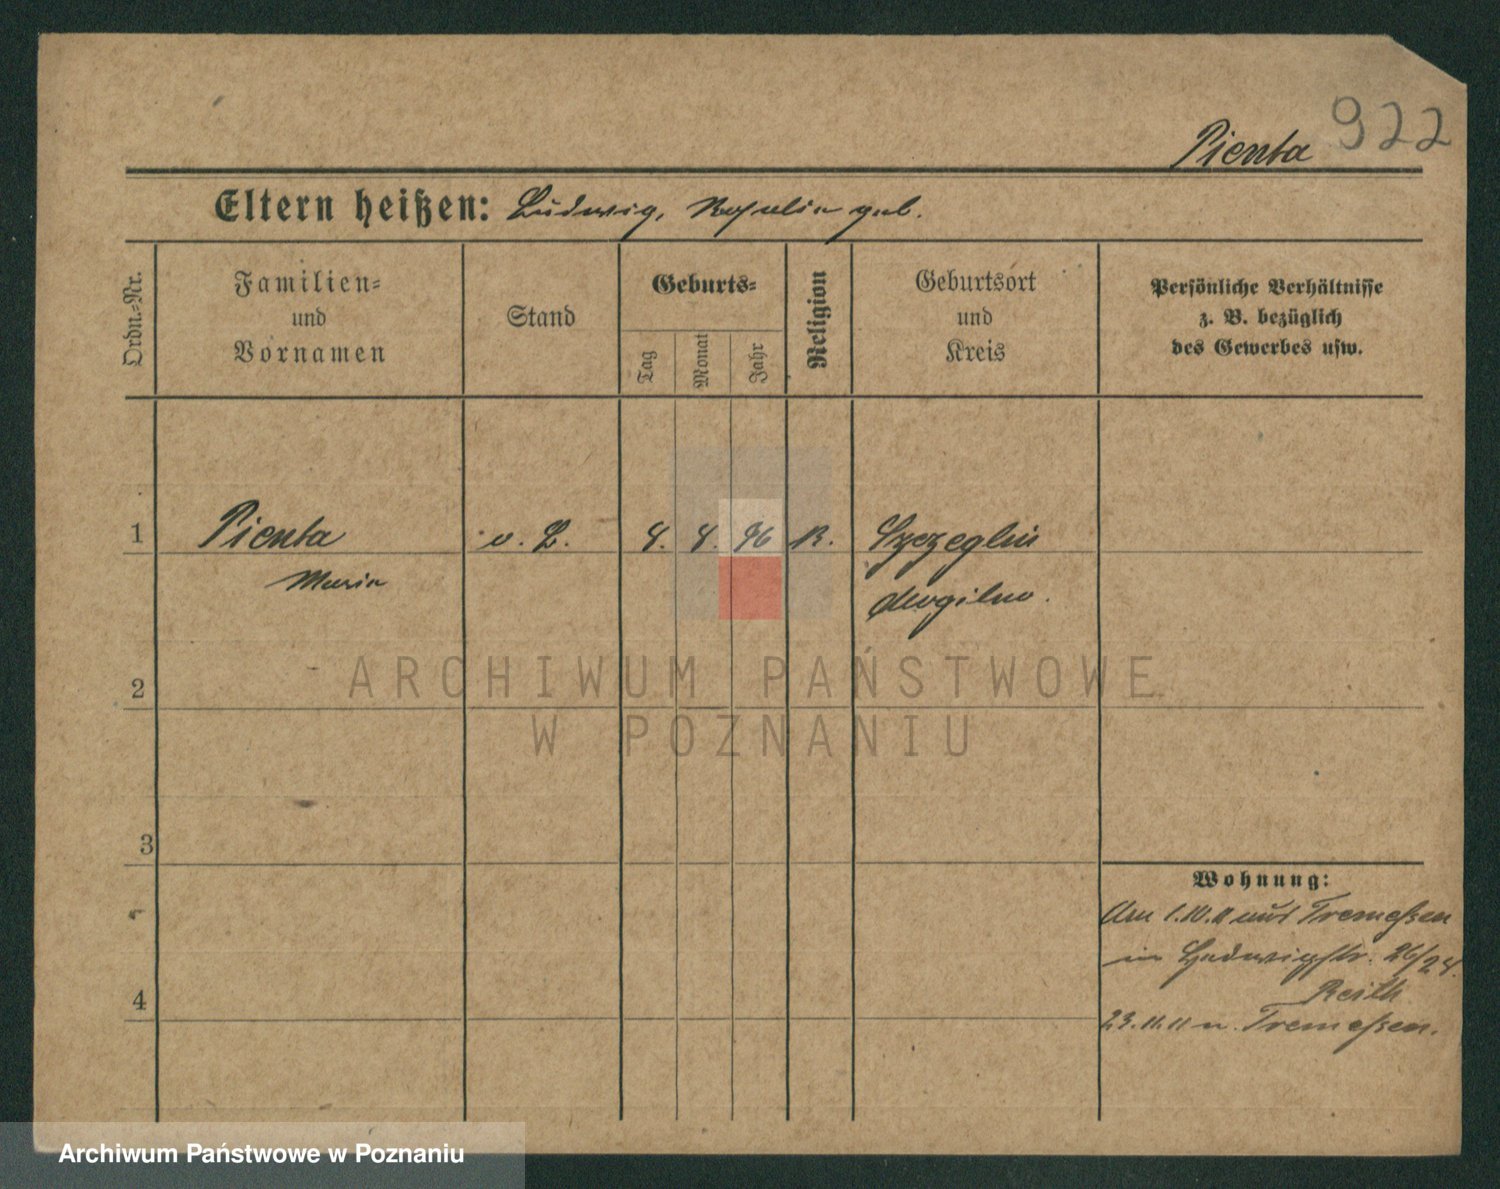 922
Pienta
Eltern heißen: Ludwig, Rosalie geb.
Ordn.-Nr.
Familien-
und
Vornamen
Stand
Geburts-
Tag
Monat
Jahr
Religion
Geburtsort
und
Kreis
Persönliche Verhältnisse
z. B. bezüglich
des Gewerbes usw.
1 Pienta o. B. 8. 8. 96 K.
Maria
Mogilno.
2
3
4
Wohnung:
Am 1.10.11 aus Tremessen
in Hedwigstr. 26/28.
Reith
23.11.11 n. Tremessen.
ARCHIWUM PAŃSTWOWE
W POZNANIU
Archiwum Państwowe w Poznaniu